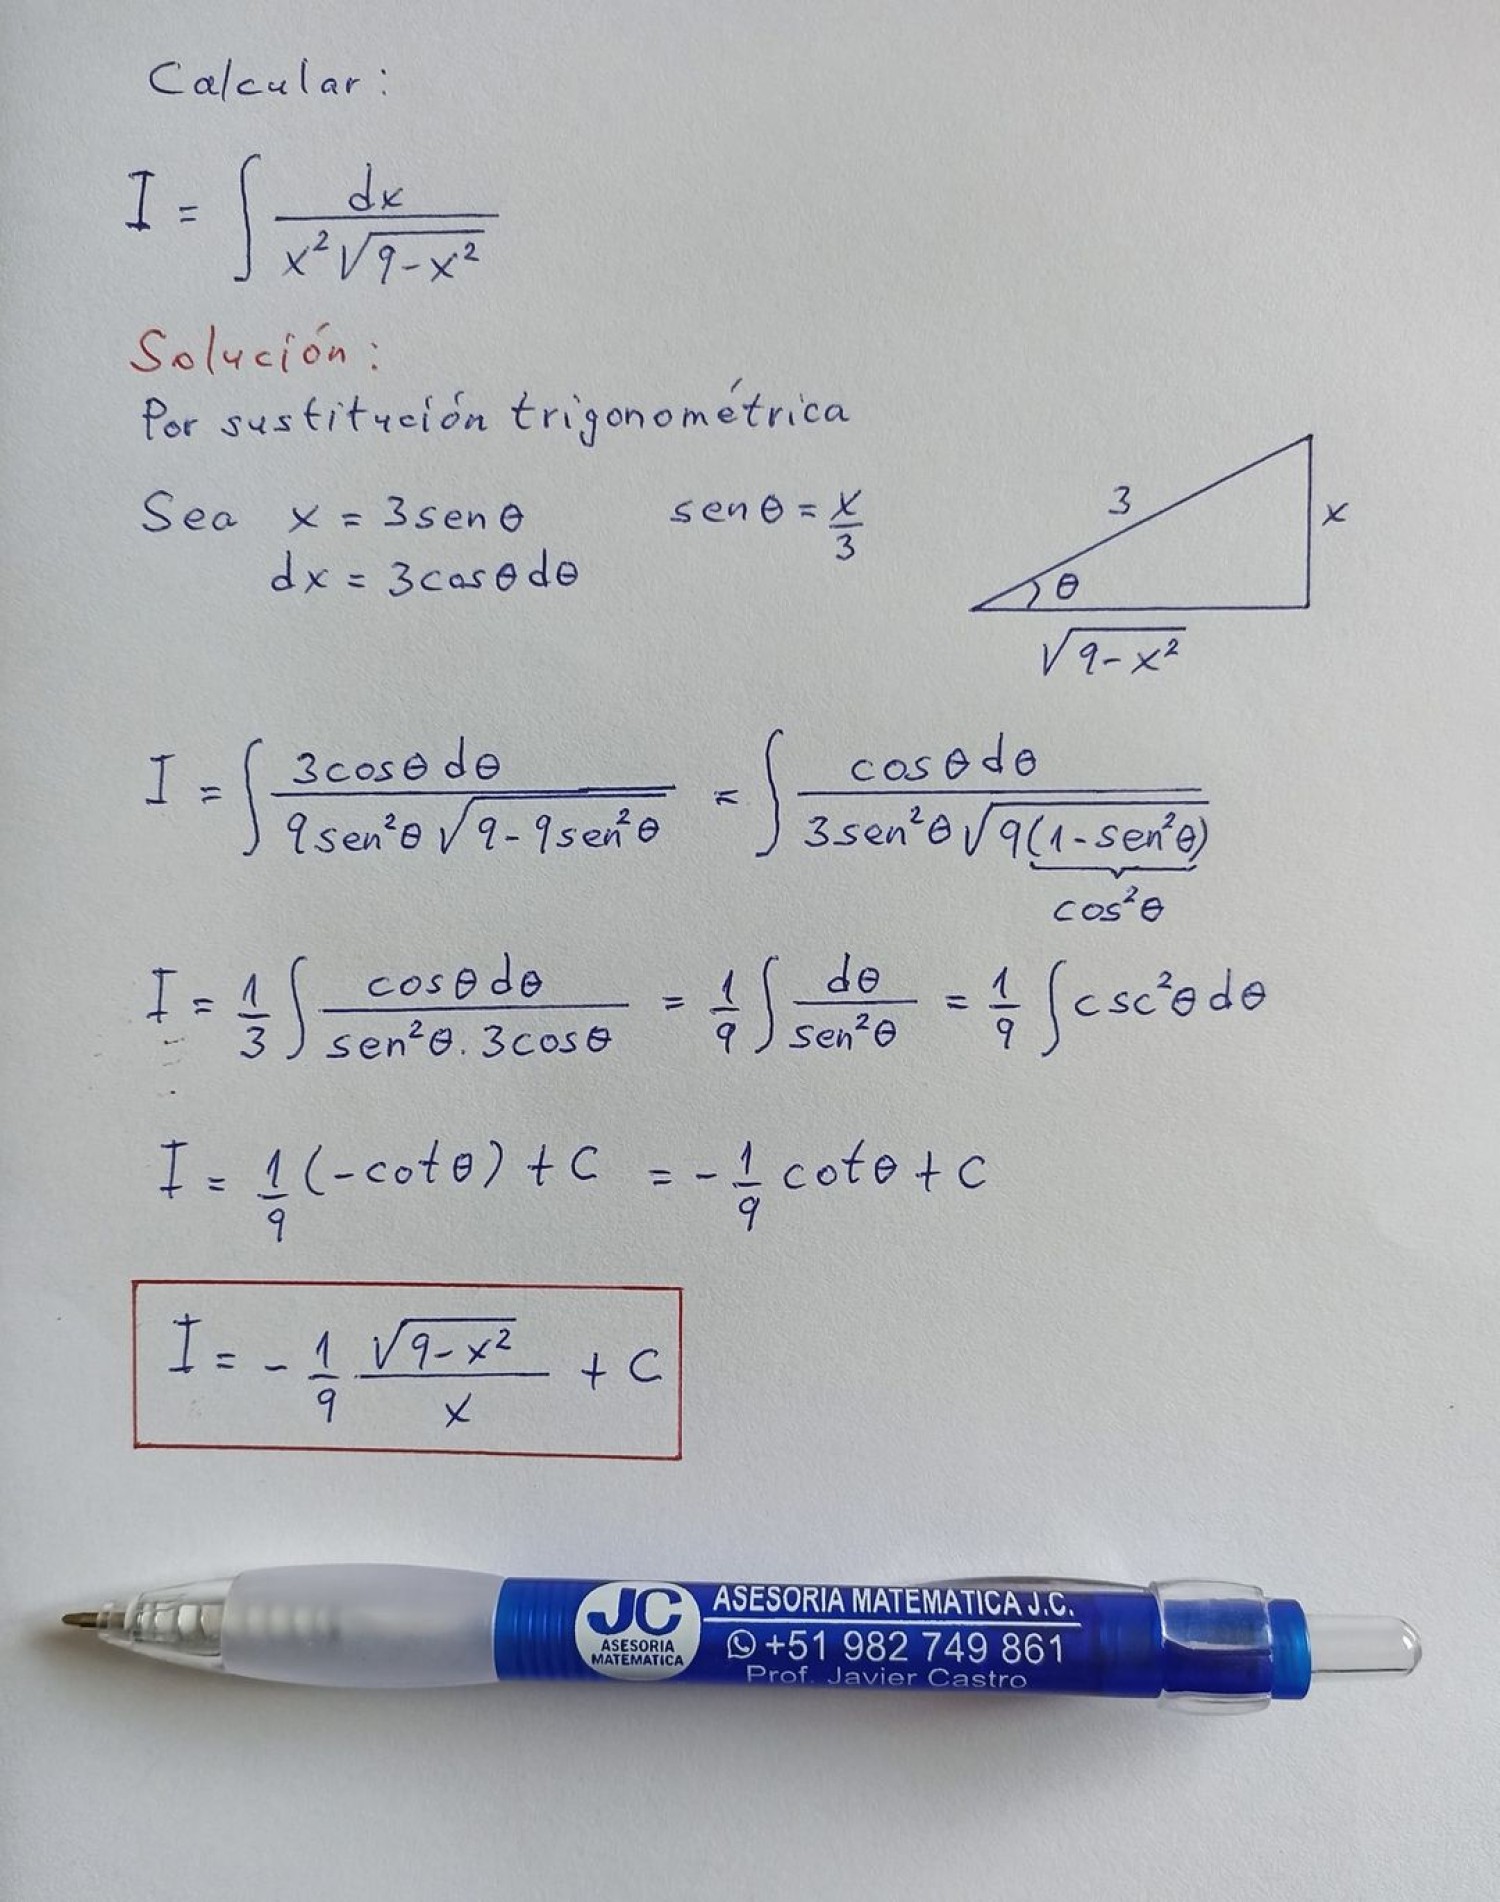 Calcular:
I = ∫ dx / (x²√(9-x²))
Solución:
Por sustitución trigonométrica
Sea x = 3senθ senθ = x/3
dx = 3cosθdθ
3
x
θ
√(9-x²)
I = ∫ 3cosθdθ / (9sen²θ√(9-9sen²θ)) = ∫ cosθdθ / (3sen²θ√(9(1-sen²θ)))
cos²θ
I = 1/3 ∫ cosθdθ / (sen²θ.3cosθ) = 1/9 ∫ dθ / sen²θ = 1/9 ∫ csc²θdθ
I = 1/9 (-cotθ) + C = -1/9 cotθ + C
I = -1/9 √(9-x²) / x + C
JC
ASESORIA
MATEMATICA
ASESORIA MATEMATICA J.C.
+51 982 749 861
Prof. Javier Castro